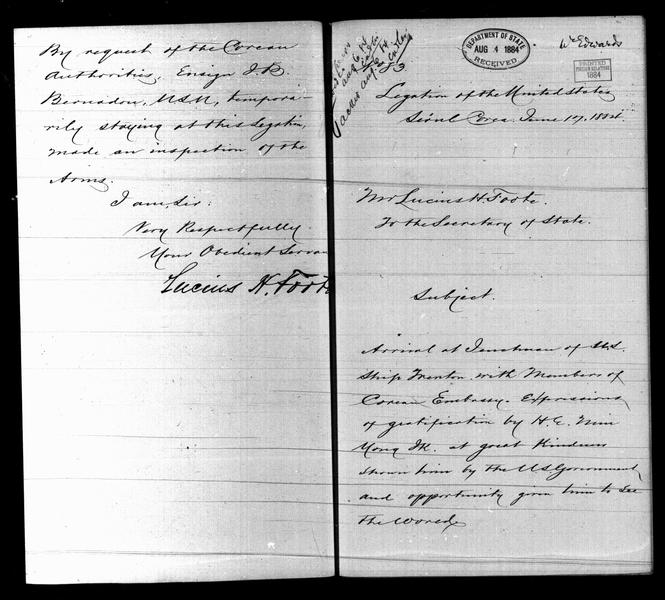 By request of the Corean
Authorities, Ensign J.B.
Bernadou, U.S.N., tempora-
rily staying at this Legation,
made an inspection of the
Arms.
I am, Sir:
Very Respectfully
Your Obedient Servan
Lucius H. Foote
DEPARTMENT OF STATE
AUG 4 1884
RECEIVED
Mr Edwards
PRINTED
FOREIGN RELATIONS
1884
Legation of the United States
Seoul Corea. June 17, 1884.
Mr Lucius H. Foote.
To the Secretary of State.
Subject.
Arrival at Jenchuan of U.S.
Ship Trenton with Members of
Corean Embassy. Expressions
of gratification by H.E. Min
Yong Ik. at great Kindness
shown him by the U.S. Government,
and opportunity given him to see
the world.